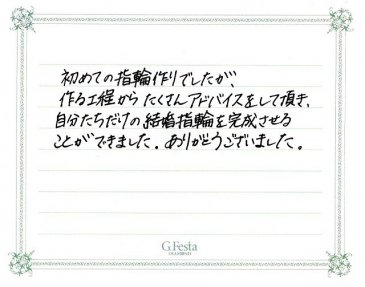 初めての指輪作りでしたが、
作る工程からたくさんアドバイスをして頂き、
自分たちだけの結婚指輪を完成させる
ことができました。ありがとうございました。
G.Festa
DIAMOND